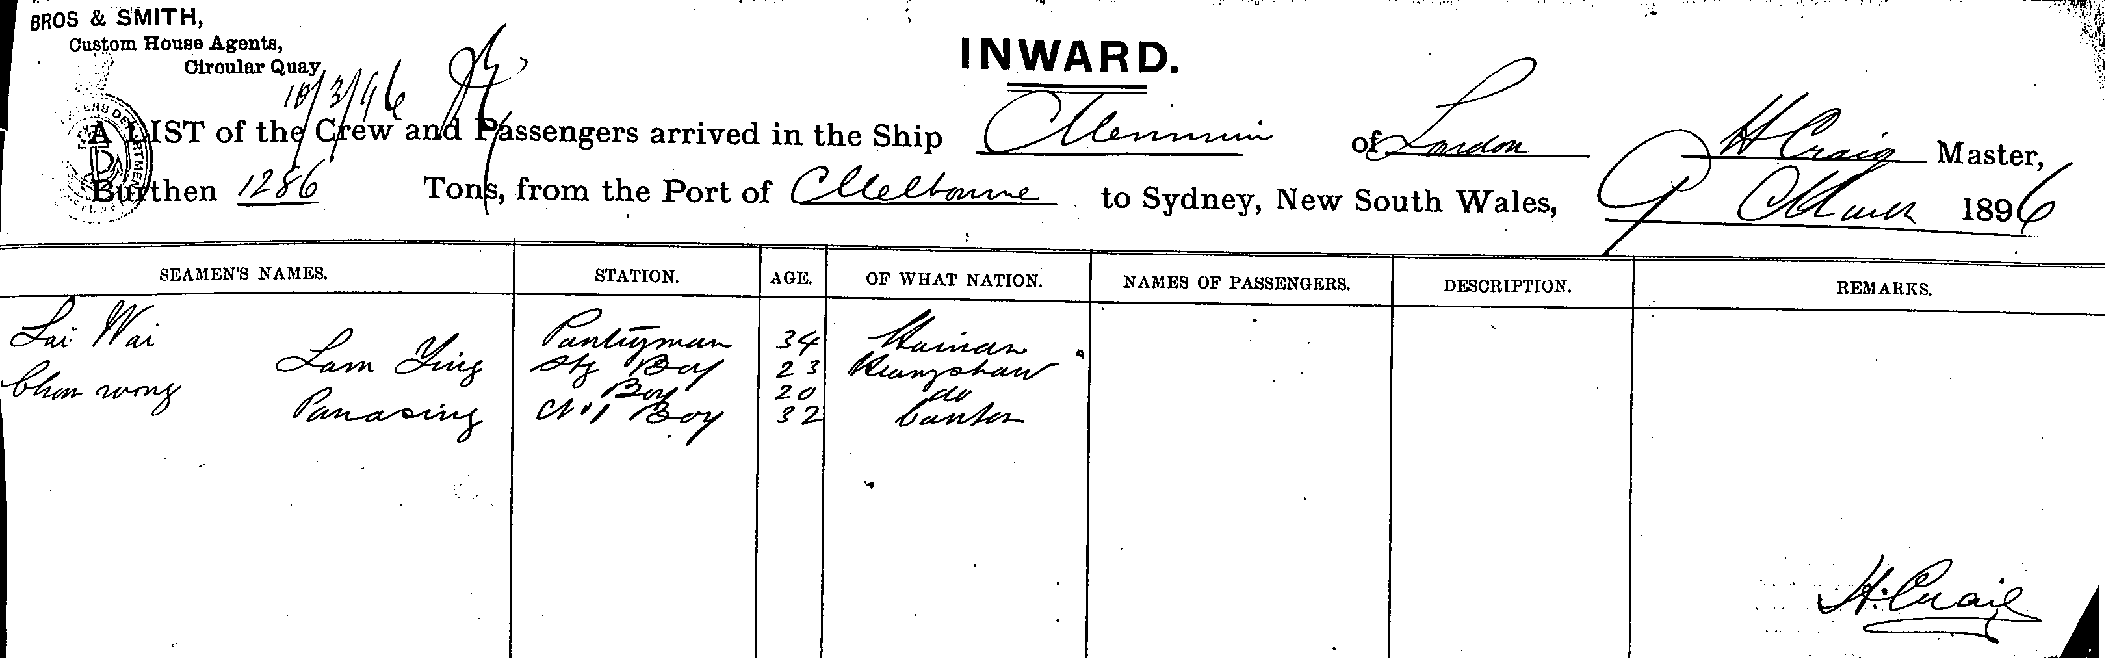 BROS & SMITH,
Custom House Agents,
Circular Quay
INWARD.
A LIST of the Crew and Passengers arrived in the Ship Menmuir of London H Craig Master,
Burthen 1286 Tons, from the Port of Melbourne to Sydney, New South Wales, 9 March 1896
SEAMEN'S NAMES. STATION. AGE. OF WHAT NATION. NAMES OF PASSENGERS. DESCRIPTION. REMARKS.
Lai Wai Pantryman 34 Hainan
Lam Ying Stg Boy 23 
Chon wong Boy 20 do
Panasing No 1 Boy 32 Canton
H. Craig